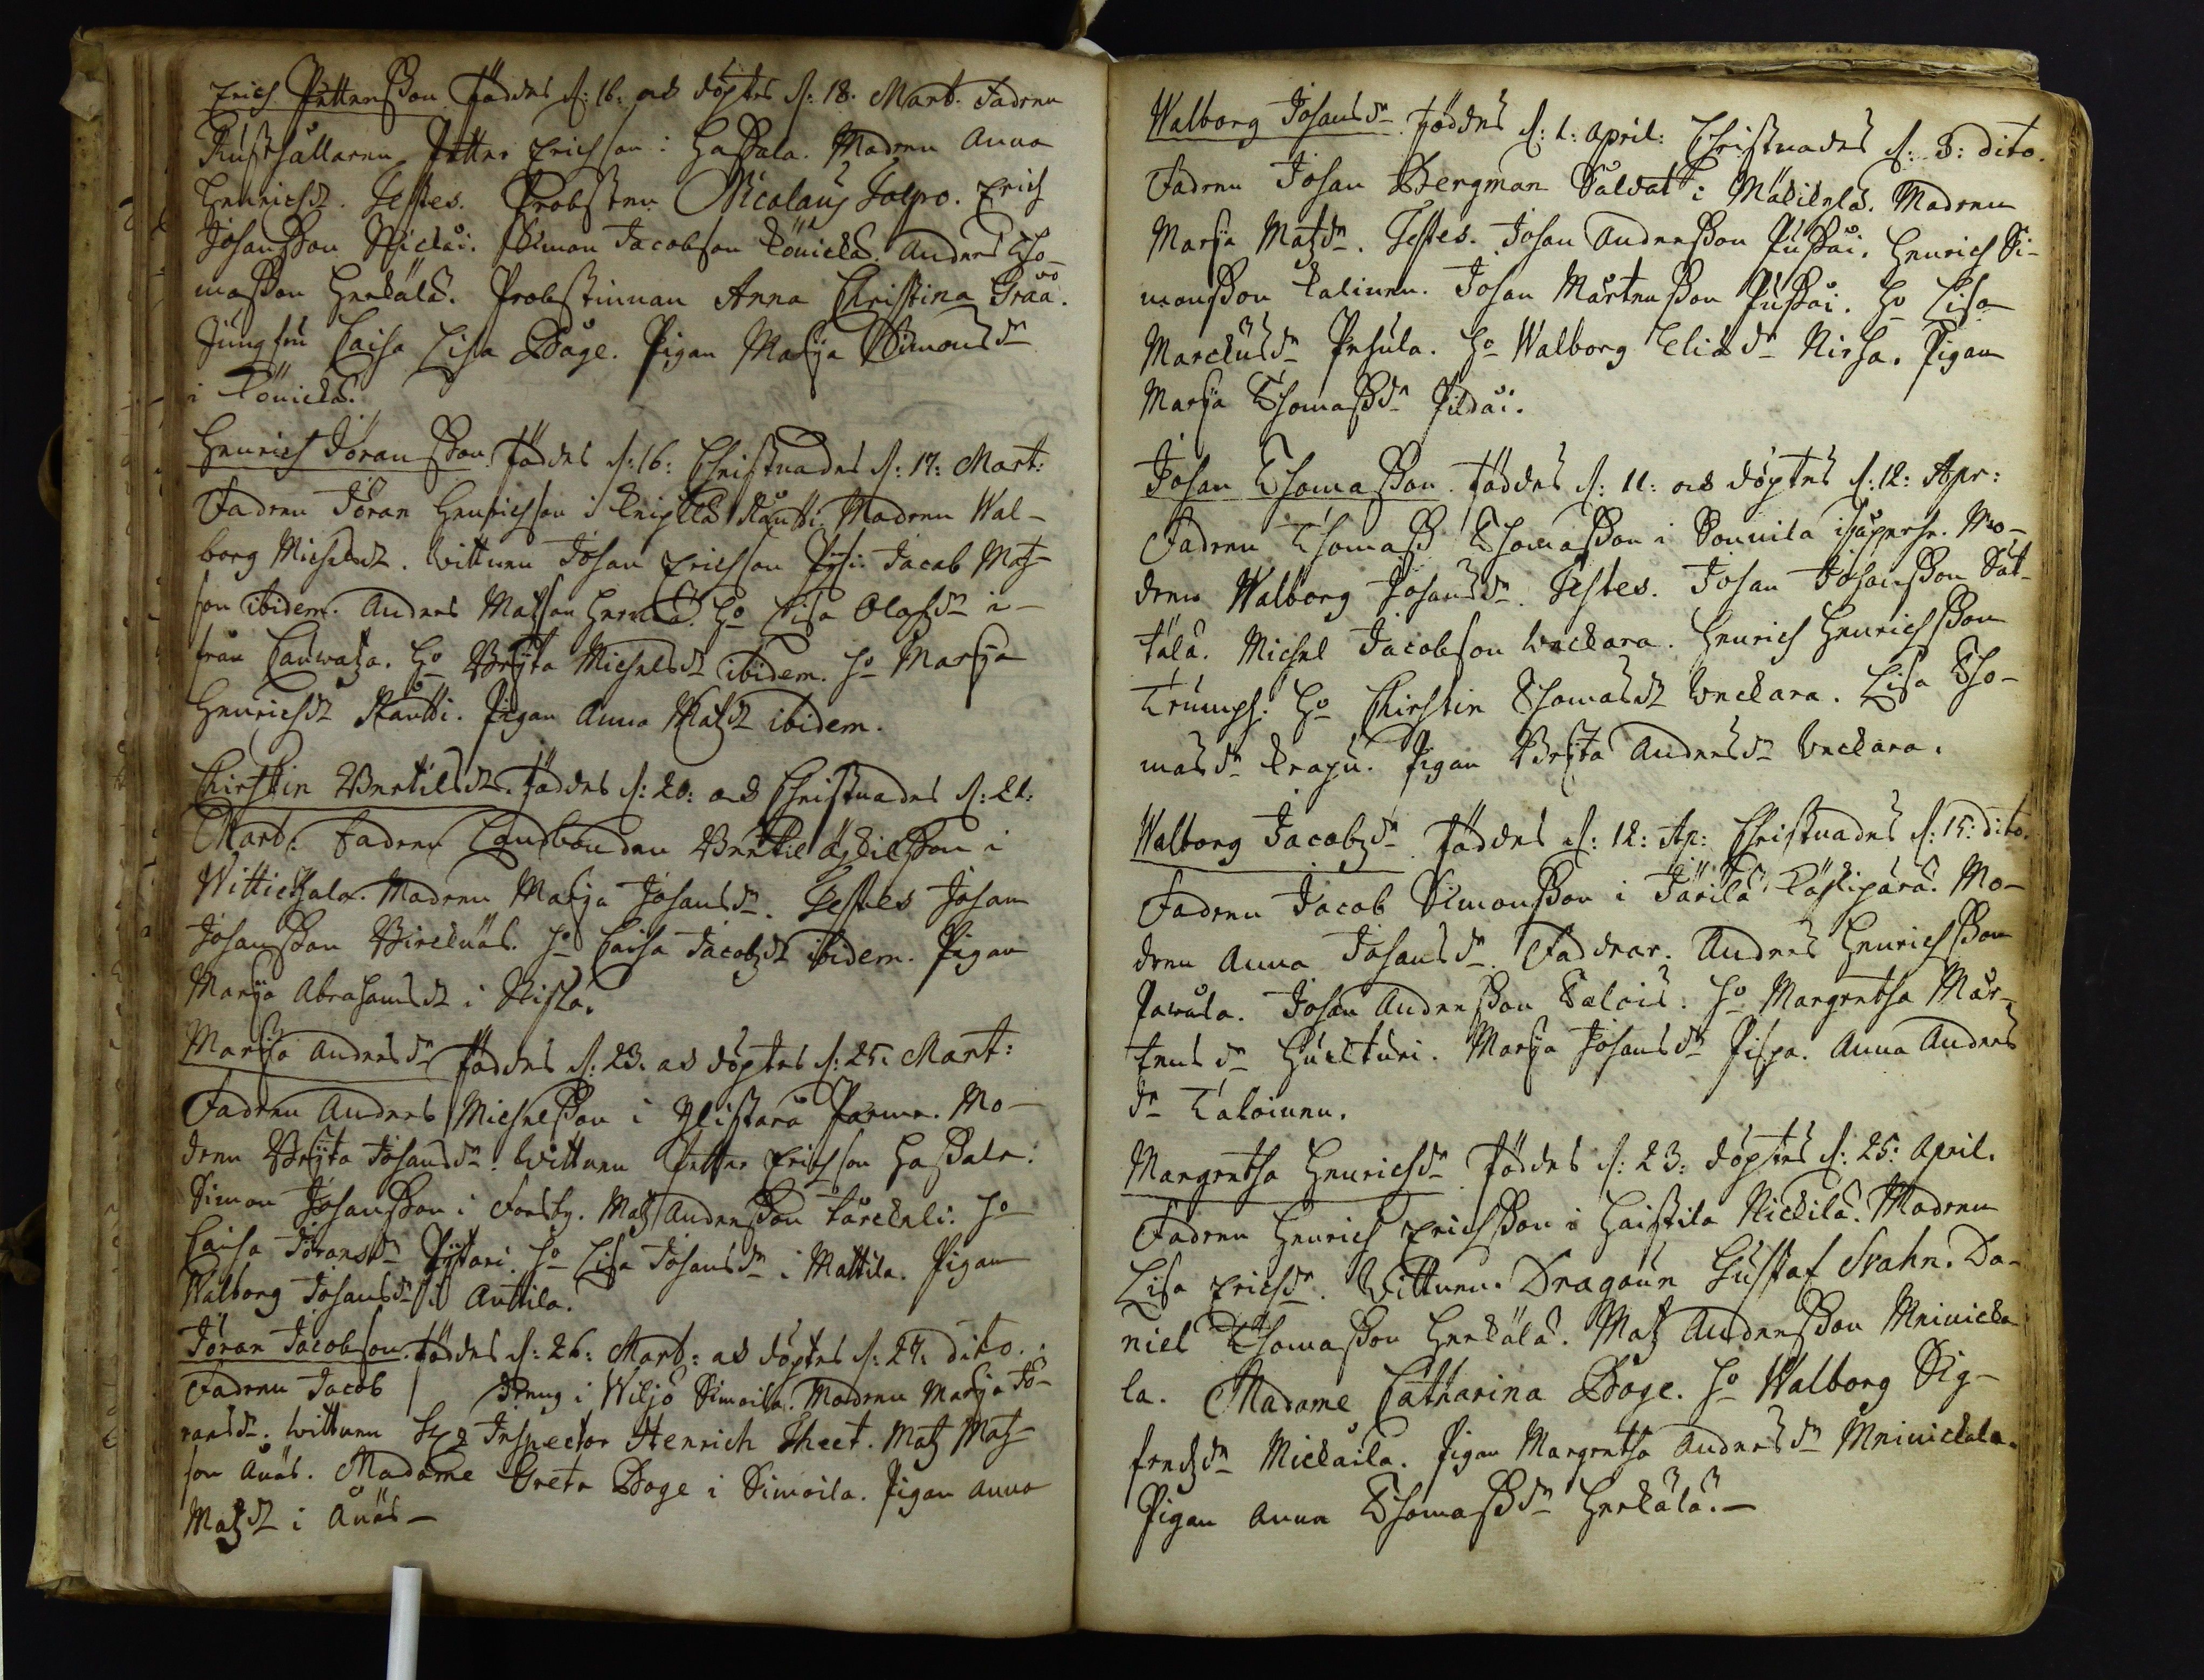 Erich Petterßon föddes d: 16: ock döptes d: 18. Mart. Fadren
Rusthållaren Petter Erichson i Haßala. Modren Anna
Henrichsdr. Testes. Probsten Nicolaus Erich
Johanßon Simon Jacobson Könickä. Anders Tho-
maßon Herkälä. Probstinnan Anna Christina Graa.
Jungfru Caisa Lisa Boge. Pigan Marja Simonsdr
i Könickä.
Henrich Jöranßon föddes d: 16: Christnades d: 17: Mart:
Fadren Jöran Henrichson i Modren Wal-
borg Michelsdr. Wittnen Johan Erichson Jacob Matz-
son ibidem. Anders Matson Ho Lisa Olofsdr i-
från Ho Brijta Michelsdr ibidem. Ho Marja
Henrichsdr Pigan Anna Matzdr ibidem.
Chirstin Bertilsdr föddes d: 20: ock Christnades d: 21:
Mart: Fadren Landbonden Bertil i
Wittickala. Modren Marja Johansdr. Testes Johan
Johanßon Bircknäs. Ho Caisa Jacobzdr ibidem. Pigan
Marja Abrahamsdr i
Marja Andersdr föddes d: 23. ock döptes d: 25. Mart:
Fadren Anders Michelßon i Ylistarå Mo-
dren Brijta Johansdr. Wittnen Petter Erichson Haßala.
Simon Johanßon i Matz Anderßon Ho
Caisa Jöransdr Ho Lisa Johansdr i Mattila. Pigan
Walborg Johansdr i Anttila.
Jöran Jacobson föddes d: 26: Mart: ock döptes d: 27. dito.
Fadren Jacob Dreng i Wiljo Simoila. Modren Marja Jö-
ransdr. Wittnen Inspector Henrich Theet. Matz Matz-
son Ånäs. Madame Greta Boge i Simoila. Pigan Anna
Matzdr i Ånäs
Walborg Johansdr föddes d: 1: April: Christnades d: 3: dito.
Fadren Johan Bergman Saldat i Mäkikylä. Modren
Marja Matzdr. Testes. Johan Anderßon Pußai. Henrich Si-
monßon Johan Mårtenßon Pußai. Ho Lisa
Marckusdr Ho Walborg Eliædr Pigan
Marja Thomaßdr
Johan Thomaßon föddes d: 11: ock döptes d: 12: Apr:
Fadren Thomaß Thomaßon i Sonnila Mo-
dren Walborg Johansdr. Testes. Johan Johanßon Sat-
tala. Michel Jacobson Weckara. Henrich Henrichßon
Trumph. Ho Chirstin Thomasdr Weckara. Lisa Tho-
masdr Krapu. Pigan Brijta Andersdr Weckara.
Walborg Jacobzdr föddes d: 12: Ap: Christnades d: 15: dito.
Fadren Jacob Simonßon i Järilä Mo-
dren Anna Johansdr. Faddrar. Anders Henrichßon
Pawola. Johan Anderßon Ho Margretha Mår-
tensdr Marja Johansdr Pispa. Anna Anders
dr Taloinen.
Margretha Henrichsdr föddes d: 23: döptes d: 25: April.
Fadren Henrich Erichßon i Haistila Nickilä. Modren
Lisa Erichsdr. Wittnen. Dragoun Gustaf Svahn. Da-
niel Thomaßon Herkälä. Matz Anderßon Meinicka
la. Madame Catharina Boge. Ho Walborg Sig-
fredzdr Mickaila. Pigan Margretha Andersdr Meinickala.
Pigan Anna Thomaßdr Herkälä.